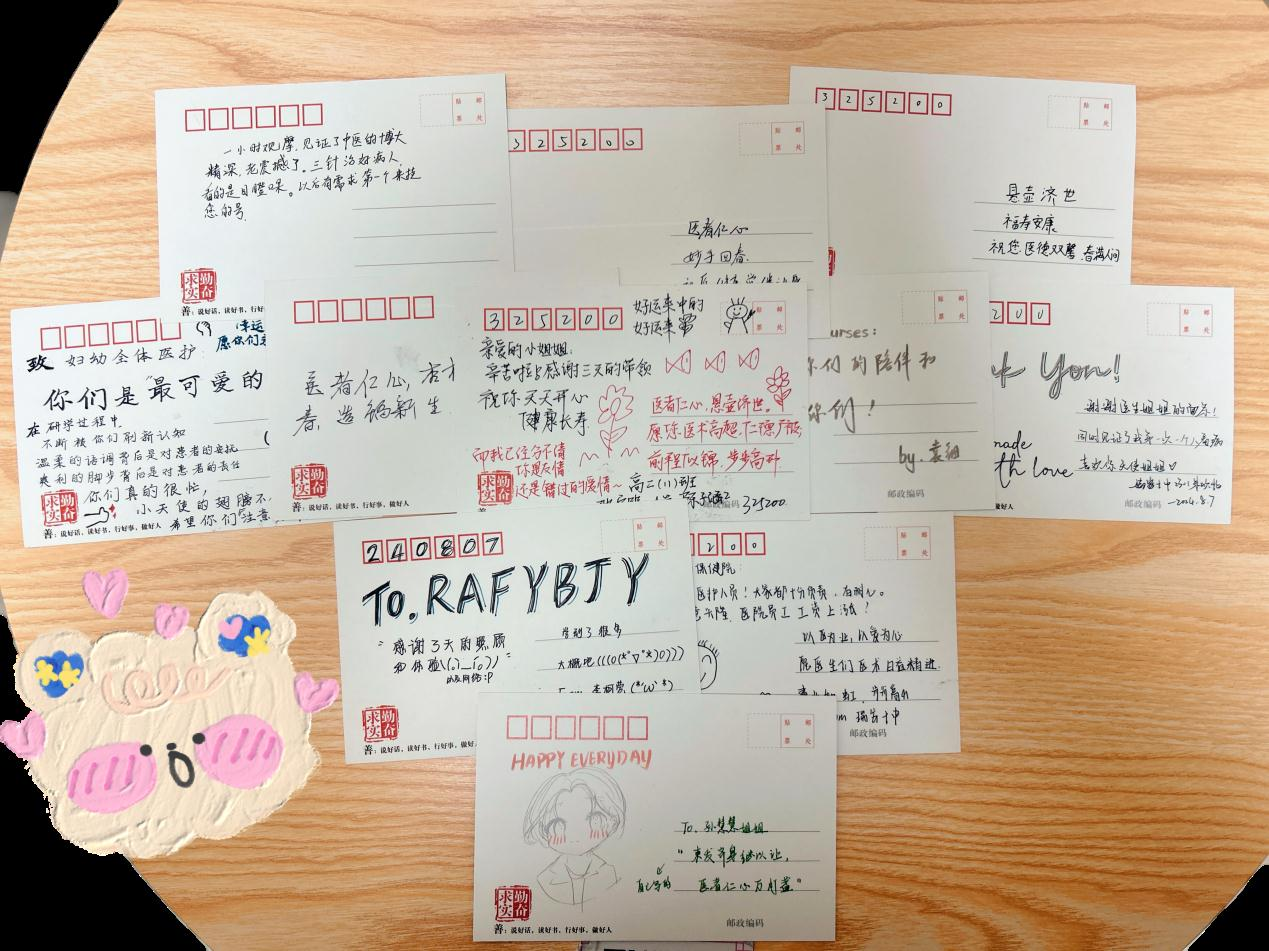 贴 邮
票 处
一小时观摩,见证了中医的博大
精深,老震撼了。三针治好病人,
看的是目瞪口呆。以后有需求第一个来挂
您的号
求 勤
实 奋
善:说好话,读好书,行好
325200
贴 邮
票 处
医者仁心
妙手回春
325200
贴 邮
票 处
悬壶济世
福寿安康
祝您医德双馨,春满人间
幸运
愿你们
致 妇幼全体医护:
你们是“最可爱的
在研学过程中
不断被你们刷新认知
温柔的语调背后是对患者的安抚
你们真的很忙,
小天使的翅膀
希望你们注意
善:说好话,读好书,行好事,做好人
医者仁心,
春,造福新生
求 勤
实 奋
善:说好话,读好书,行好事,做好人
325200
好运来中的
好运来
亲爱的小姐姐:
辛苦啦!感谢三天的带领
祝你天天开心
健康长寿
医者仁心,悬壶济世。
愿你医术高超,仁德
前程似锦,步步高升
而我已经分不清
你是友情
还是错过的爱情~
高二(11)班
325200
善:说好话,读好书,行好事,做好人
贴 邮
票 处
urses:
你们的陪伴和
你们!
by.袁
邮政编码
200
贴 邮
票 处
k You!
谢谢医生姐姐的
made
th love
喜欢你天使姐姐♡
—2024.8.7
邮政编码
做好人
240807
贴 邮
票 处
To.RAFYBJY
“感谢3天的照顾
和体验\(.-_-.)/”
以及网络:P
学到了很多
大概吧(((o(*°▽°*)o)))
求 勤
实 奋
善:说好话,读好书,行好事,做好
200
贴 邮
票 处
保健院:
医护人员!大家都十分负责,有耐心。
医院员工工资上涨!
以医为业,以爱为心
愿医生们医术日益精进
瑞安十中
邮政编码
贴 邮
票 处
HAPPY EVERYDAY
To.孙慧慧姐姐
自己写的
医者仁心万灯盏”
求 勤
实 奋
善:说好话,读好书,行好事,做好人
邮政编码